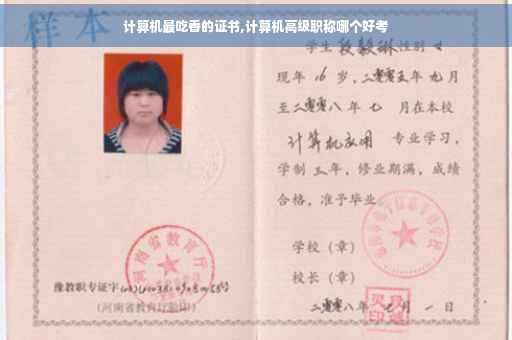 计算机最吃香的证书,计算机高级职称哪个好考
样本
学生段毅琳性别女
现年16岁,二零零五年九月
至二零零八年七月在本校
计算机应用 专业学习,
学制三年,修业期满,成绩
合格,准予毕业
学校(章)
校长(章)
二零零八年七月一日
河南省教育厅
豫教职专证字
(河南省教育厅验印)